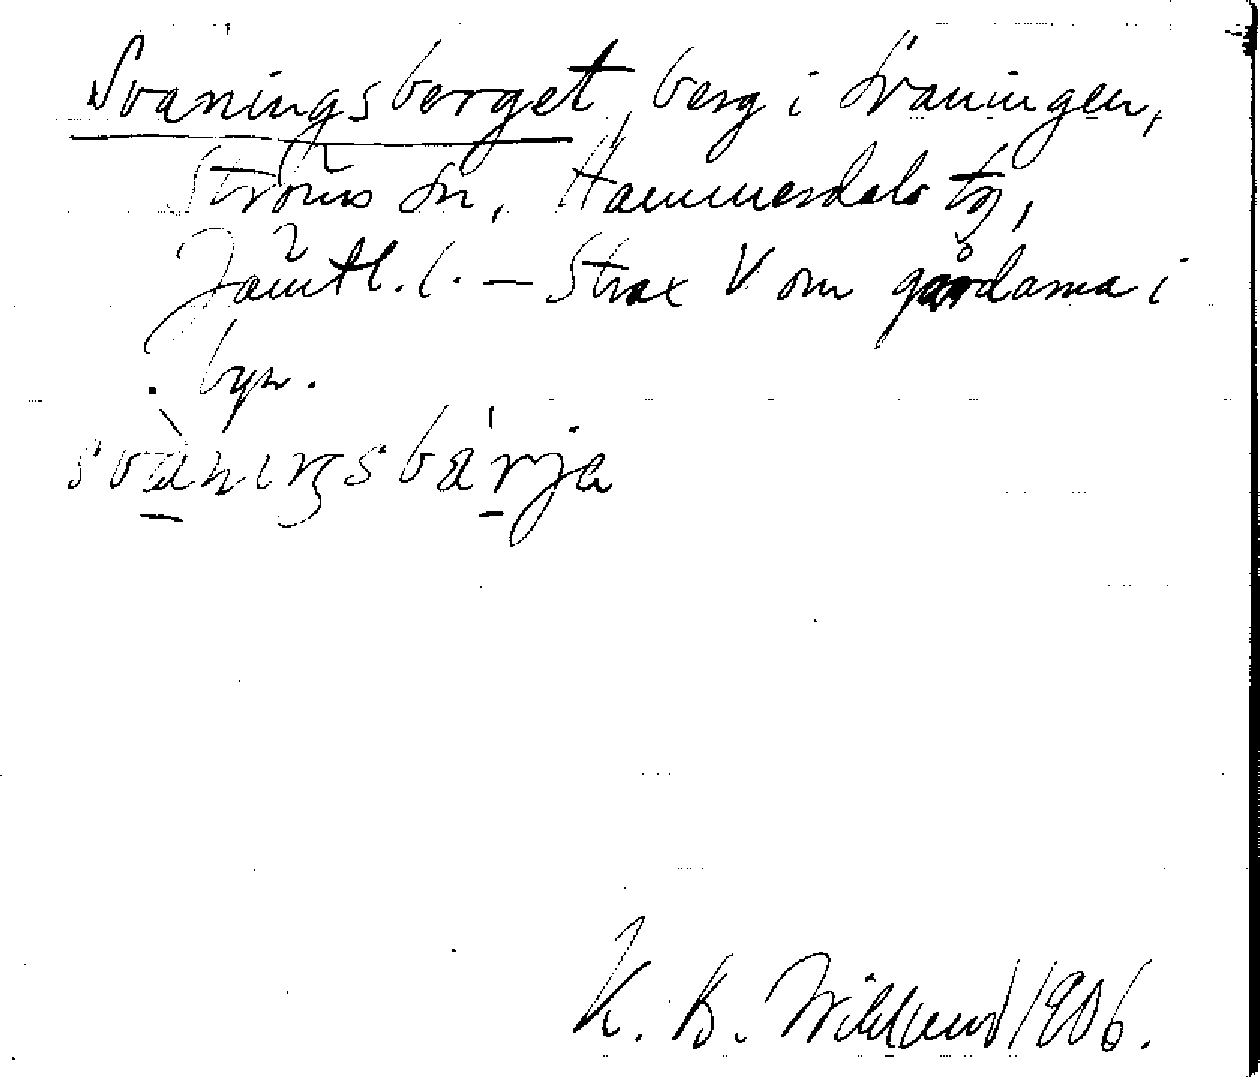 Svaningsberget, berg i Svaningen,
Ströms sn, Hammerdals tg,
Jämtl. l. — Strax V om gårdarna i
byn.
svànıŋsbárja
K. B. Wiklund 1906.